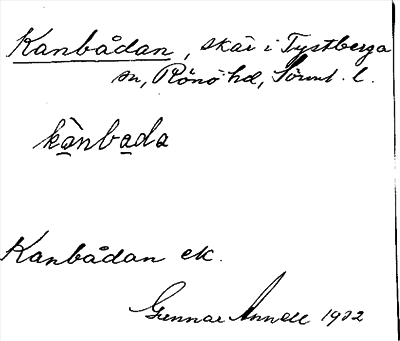 Kanbådan, skär i Tystberga
sn, Rönö hd, Sörml. l.
kànbada
Kanbådan ek.
Gunnar Annell 1932